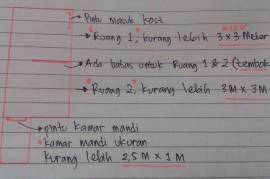 → Pintu masuk kost
→ Ruang 1, kurang lebih 3 x 3 Meter
→ Ada batas untuk Ruang 1 & 2 (tembok
→ Ruang 2, kurang lebih 3M x 3M
→ pintu kamar mandi
* kamar mandi ukuran
kurang lebih 2,5 M x 1 M